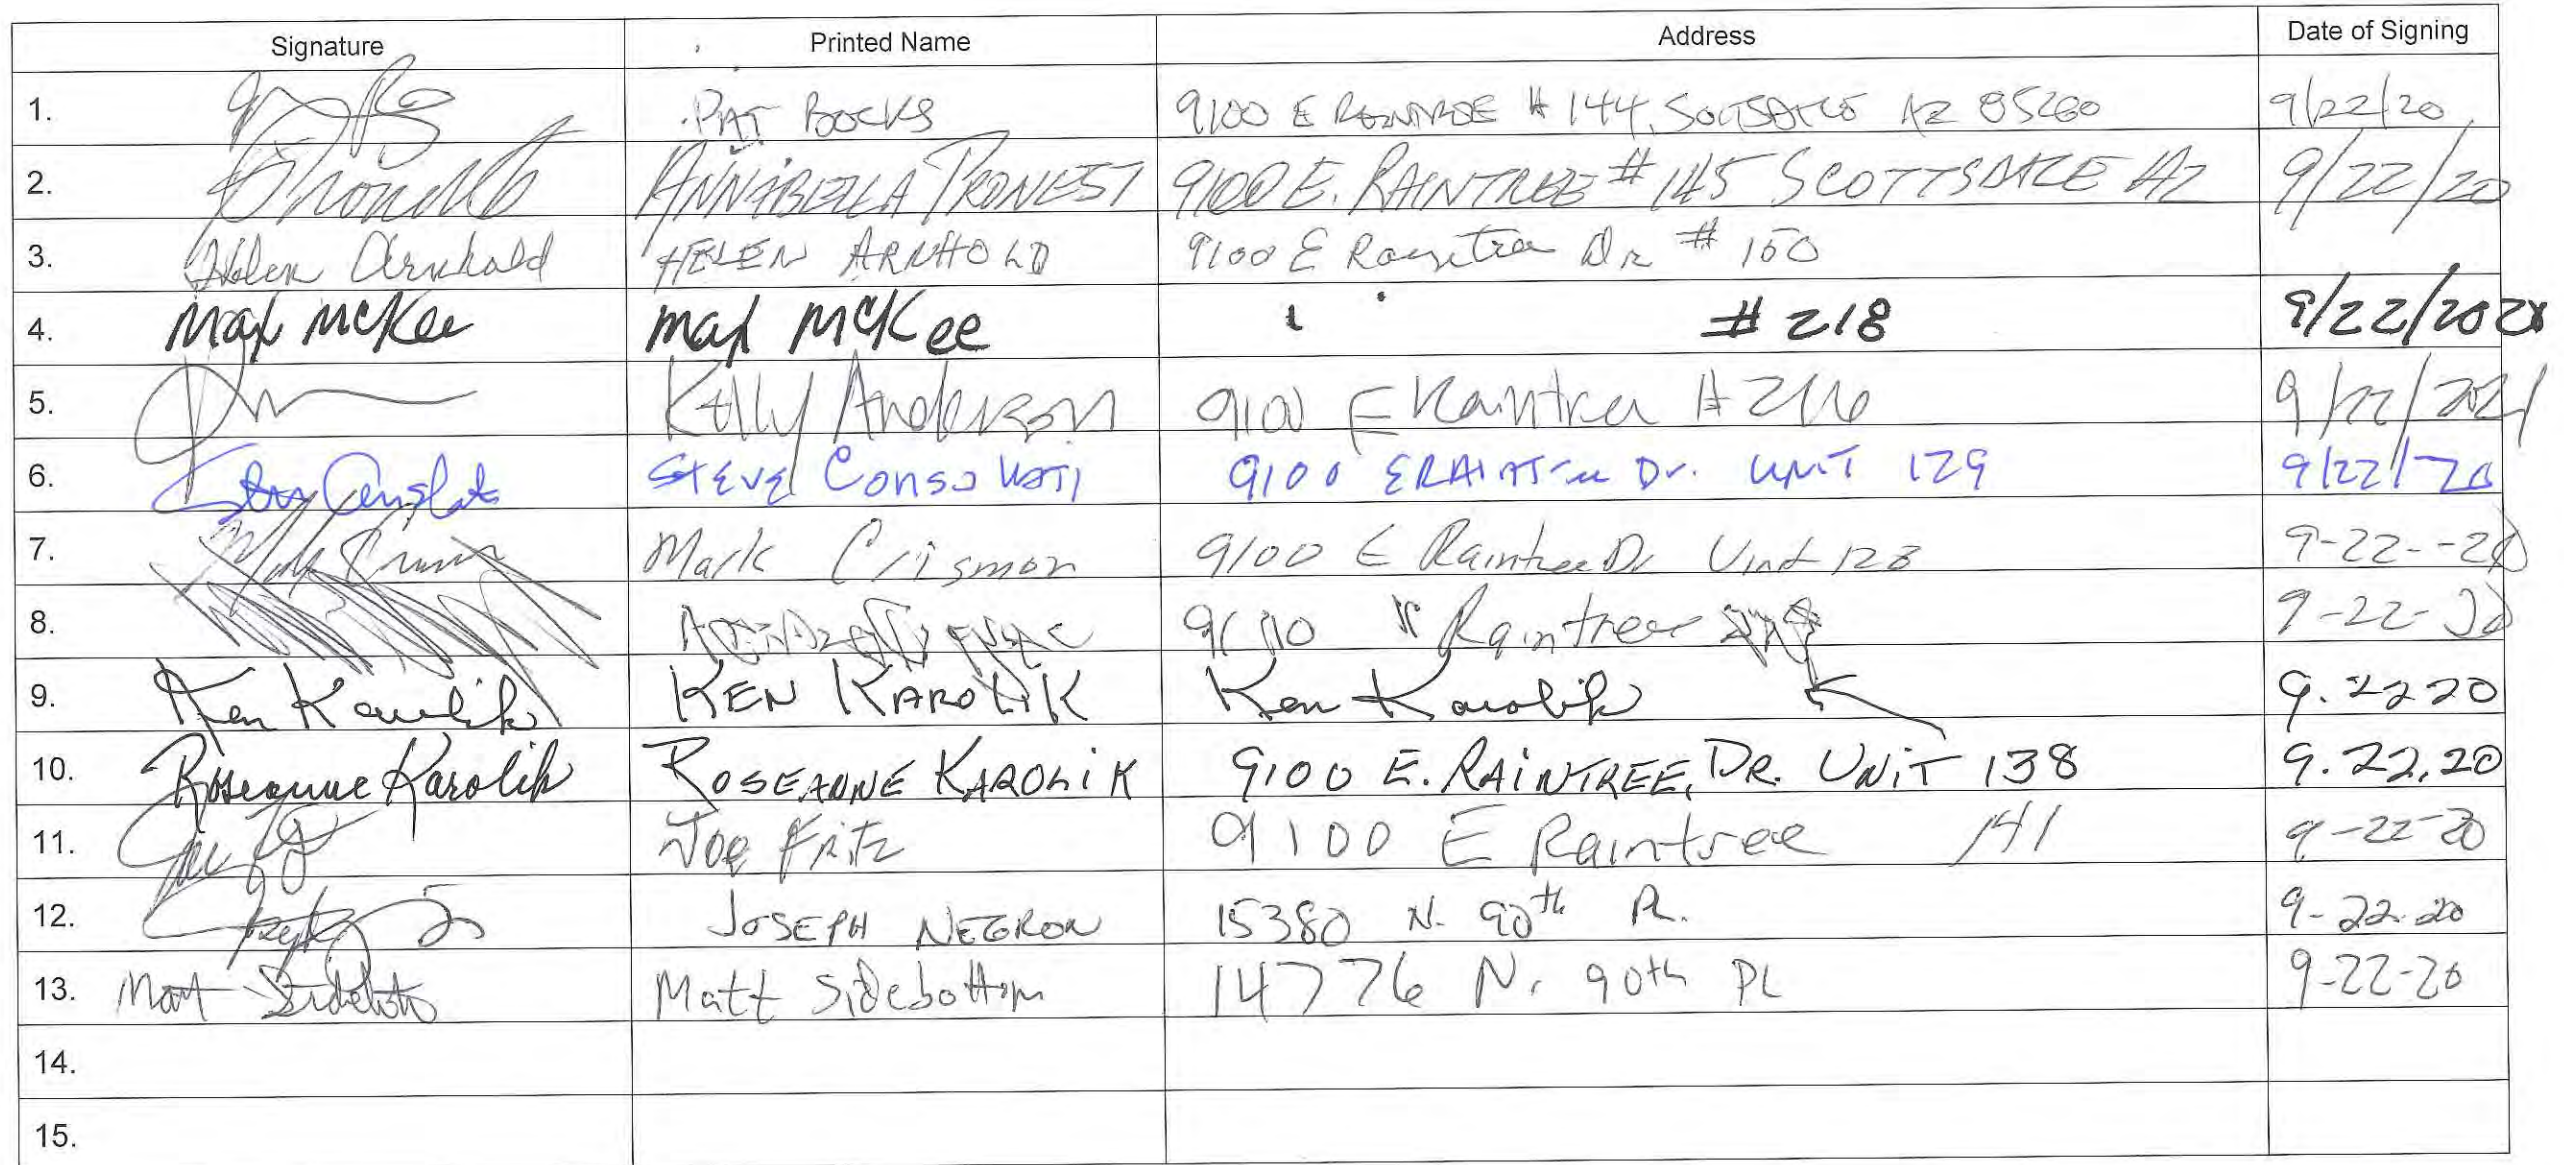 Signature Printed Name Address Date of Signing
1. PAT BOCKS 9100 E # 144, AZ 85260 9/22/20
2. ANNABELLA PRONESTI 9100 E. RAINTREE # 145 SCOTTSDALE AZ 9/22/20
3. Helen Arnhold HELEN ARNHOLD 9100 E Raintree Dr # 150
4. Max McKee Max McKee # 218 9/22/2020
5. Kelly Anderson 9100 E Raintree # 216 9/22/
6. STEVE 9100 E Dr. UNIT 129 9/22/20
7. Mark Crismon 9100 E Raintree Dr Unit 128 9-22--20
8. 9100 " Raintree 9-22-20
9. Ken Karolik KEN KAROLIK Ken Karolik 9.22 20
10. Roseanne Karolik ROSEANNE KAROLIK 9100 E. RAINTREE, DR. UNIT 138 9.22.20
11. Joe Fritz 9100 E Raintree 141 9-22-20
12. JOSEPH NEGRON 15380 N. 90th PL. 9-22-20
13. Matt Sidebottom Matt Sidebottom 14776 N. 90th PL 9-22-20
14.
15.